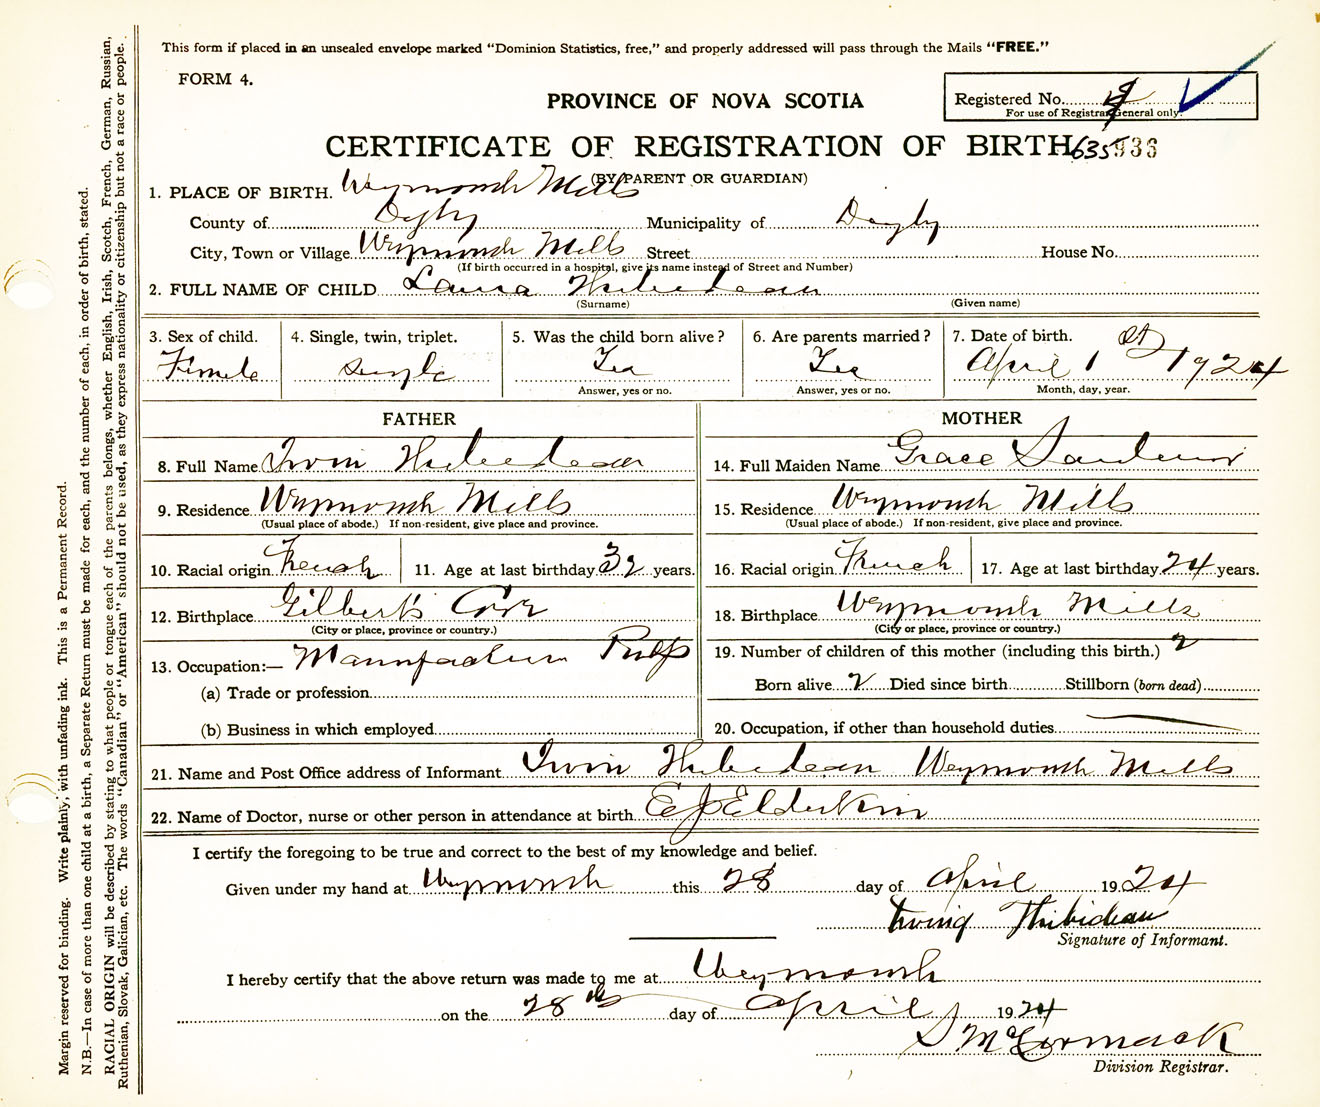 This form if placed in an unsealed envelope marked "Dominion Statistics, free," and properly addressed will pass through the Mails "FREE."
FORM 4.
Registered No.
For use of Registrar General only.
PROVINCE OF NOVA SCOTIA
CERTIFICATE OF REGISTRATION OF BIRTH 635 936
(BY PARENT OR GUARDIAN)
1. PLACE OF BIRTH. Weymouth Mills
County of Digby Municipality of Digby
City, Town or Village Weymouth Mills Street House No.
(If birth occurred in a hospital, give its name instead of Street and Number)
2. FULL NAME OF CHILD Laura Thibedeau
(Surname) (Given name)
3. Sex of child. 4. Single, twin, triplet. 5. Was the child born alive? 6. Are parents married? 7. Date of birth.
Femele single Yes Yes April 1 st 1924
Answer, yes or no. Answer, yes or no. Month, day, year.
FATHER MOTHER
8. Full Name Irvin Thibedeau 14. Full Maiden Name Grace
9. Residence Weymouth Mills 15. Residence Weymouth Mills
(Usual place of abode.) If non-resident, give place and province. (Usual place of abode.) If non-resident, give place and province.
10. Racial origin French 11. Age at last birthday 32 years. 16. Racial origin French 17. Age at last birthday 24 years.
12. Birthplace Gilberts Cove 18. Birthplace Weymouth Mills
(City or place, province or country.) (City or place, province or country.)
13. Occupation:— Pulp 19. Number of children of this mother (including this birth.) 2
(a) Trade or profession Born alive 2 Died since birth Stillborn (born dead)
(b) Business in which employed 20. Occupation, if other than household duties
21. Name and Post Office address of Informant Irvin Thibedeau Weymouth Mills
22. Name of Doctor, nurse or other person in attendance at birth E J Elderkin
I certify the foregoing to be true and correct to the best of my knowledge and belief.
Given under my hand at Weymouth this 28 day of April 1924
Irving Thibideau
Signature of Informant.
I hereby certify that the above return was made to me at Weymouth
on the 28th day of April 1924
S McCormack
Division Registrar.
Margin reserved for binding. Write plainly, with unfading ink. This is a Permanent Record.
N.B.—In case of more than one child at a birth, a Separate Return must be made for each, and the number of each, in order of birth, stated.
RACIAL ORIGIN will be described by stating to what people or tongue each of the parents belongs, whether English, Irish, Scotch, French, German, Russian,
Ruthenian, Slovak, Galician, etc. The words "Canadian" or "American" should not be used, as they express nationality or citizenship but not a race or people.